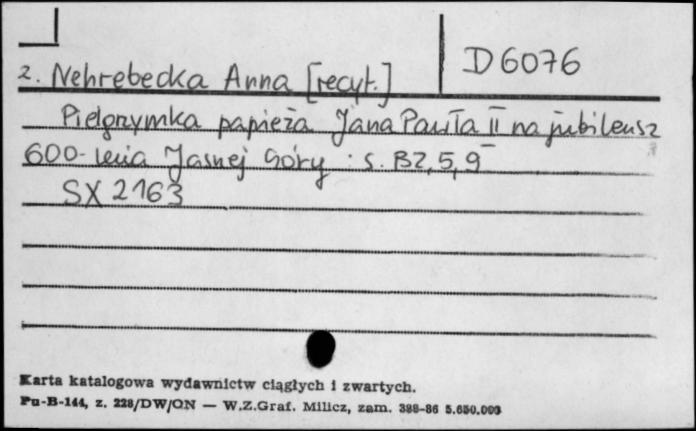 D 6076
2. Nehrebecka Anna [recyt.]
Pielgrzymka papieża Jana Pawła II na jubileusz
600-lecia Jasnej Góry : s. B2,5,9
SX 2163
Karta katalogowa wydawnictw ciągłych i zwartych.
Pu-B-144, z. 228/DW/ON — W.Z.Graf. Milicz, zam. 388-86 5.650.000